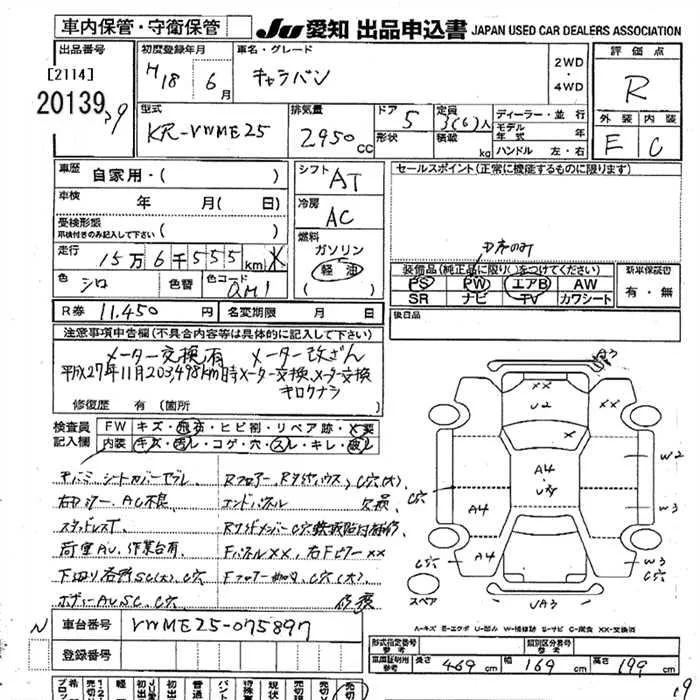 車内保管・守衛保管
JU 愛知 出品申込書 JAPAN USED CAR DEALERS ASSOCIATION
出品番号
[2114]
20139
初度登録年月
H18 6月
車名・グレード
キャラバン
2WD
・
4WD
評価点
R
外装 内装
E C
型式
KR-VWME25
排気量
2950 cc
ドア 5
形状
定員 3(6)人
積載 kg
ディーラー・並行
モデル年式 年
ハンドル 左・右
車歴 自家用・( )
車検 年 月( 日)
受検形態
車検付きのみ記入して下さい ( )
走行 15万6千555km
色 シロ 色替 色コード QM1
R券 11.450 円 名変期限 月 日
シフト AT
冷房 AC
燃料
ガソリン
軽油
セールスポイント(正常に機能するものに限ります)
装備品(純正品に限り○をつけてください)
PS PW エアB AW
SR ナビ TV カワシート
新車保証書
有・無
後日品
注意事項申告欄(不具合内容等は具体的に記入して下さい)
メーター交換有 メーター改ざん
平成27年11月203,498km時メーター交換、メーター交換
キロクナシ
修復歴 有(箇所
検査員記入欄
FW キズ・飛石・ヒビ割・リペア跡・X要
内装 キズ・汚レ・コゲ・穴・スレ・キレ・破レ
シートカバーヤブレ
AC不良
エンドパネル
欠品
スタッドレスT
荷室AU、作業台有
FパネルXX、右FピラーXX
下廻り各所SC(大)、C穴
ボディーAU、SC、C穴
A3
XX
XX
U2
X
A4
A4
A4
W2
W3
W3
C穴
C穴
C穴
UA3
スペア
A-キズ E-エクボ U-凹み W-補修跡 S-サビ C-腐食 XX-交換済
N
車台番号 VWME25-075897
登録番号
型式指定番号 参考
類別区分番号 参考
車両証明用参考 長さ 469 cm 幅 169 cm 高さ 199 cm